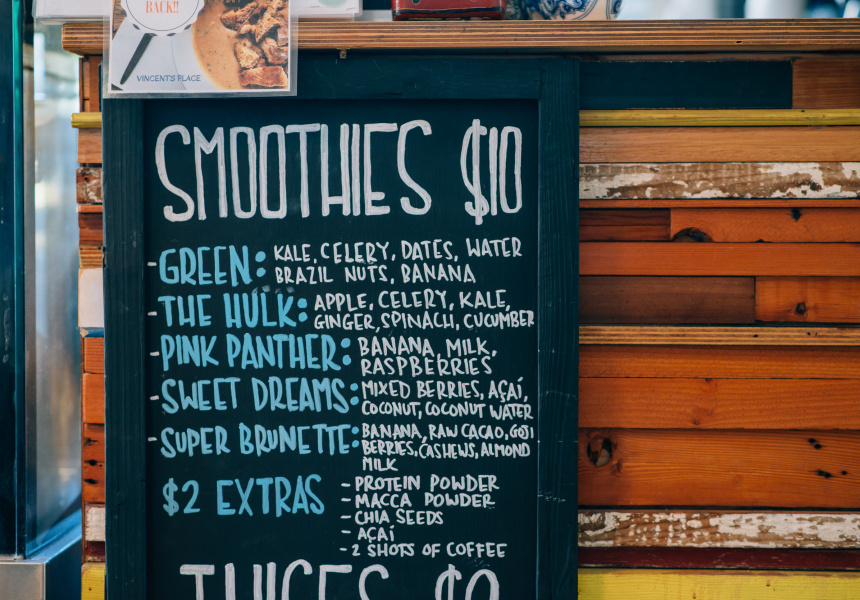 BACK!!
VINCENT'S PLACE
SMOOTHIES $10
-GREEN: KALE, CELERY, DATES, WATER
BRAZIL NUTS, BANANA
-THE HULK: APPLE, CELERY, KALE,
GINGER, SPINACH, CUCUMBER
-PINK PANTHER: BANANA, MILK,
RASPBERRIES
-SWEET DREAMS: MIXED BERRIES, AÇAÍ,
COCONUT, COCONUT WATER
-SUPER BRUNETTE: BANANA, RAW CACAO, GOJI
BERRIES, CASHEWS, ALMOND
MILK
$2 EXTRAS - PROTEIN POWDER
- MACCA POWDER
- CHIA SEEDS
- AÇAÍ
- 2 SHOTS OF COFFEE
JUICES